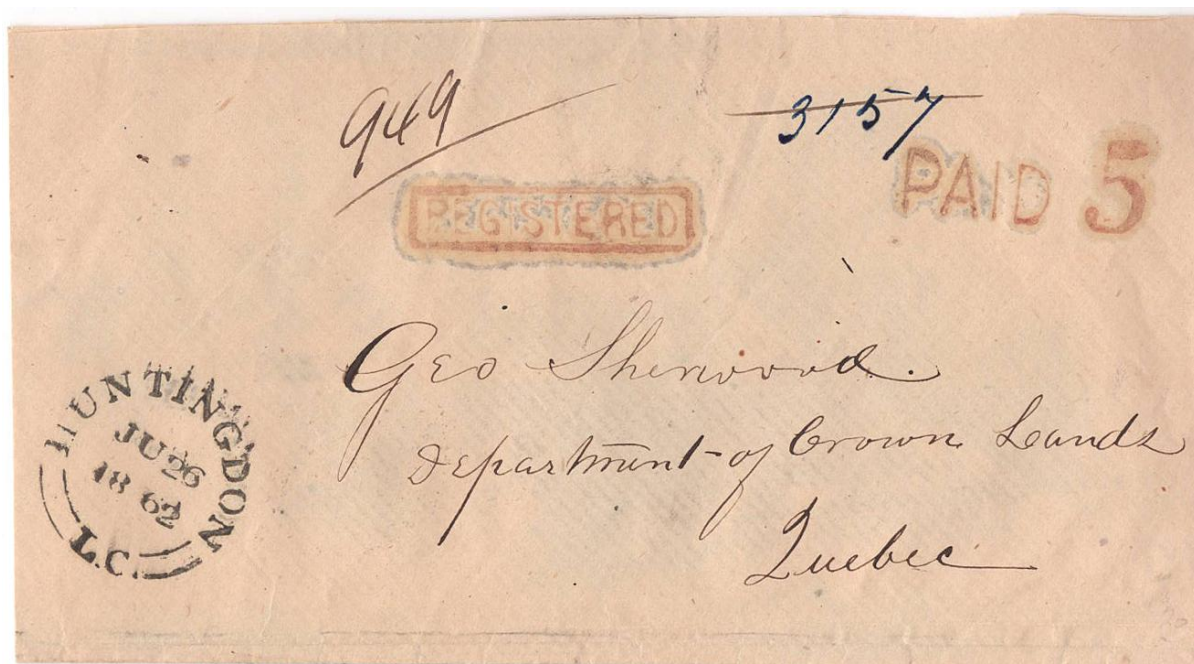 949
3157
REGISTERED
PAID 5
Geo Sherwood.
Department of Crown Lands
Quebec
HUNTINGDON
JU 26
1862
L.C.